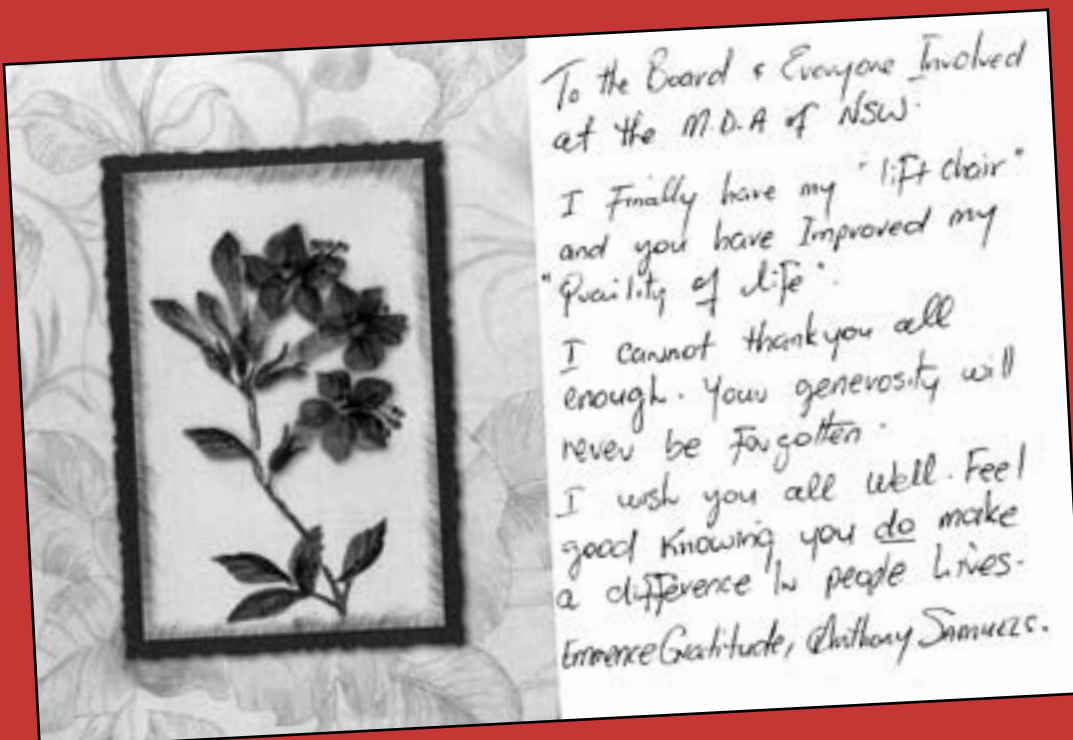 To the Board & Everyone Involved
at the M.D.A of NSW.
I Finally have my "lift chair"
and you have Improved my
"Quaility of life".
I cannot thankyou all
enough. Your generosity will
never be Forgotten.
I wish you all well. Feel
good Knowing you do make
a difference In people Lives.
Emmence Gratitude, Anthony Samuels.